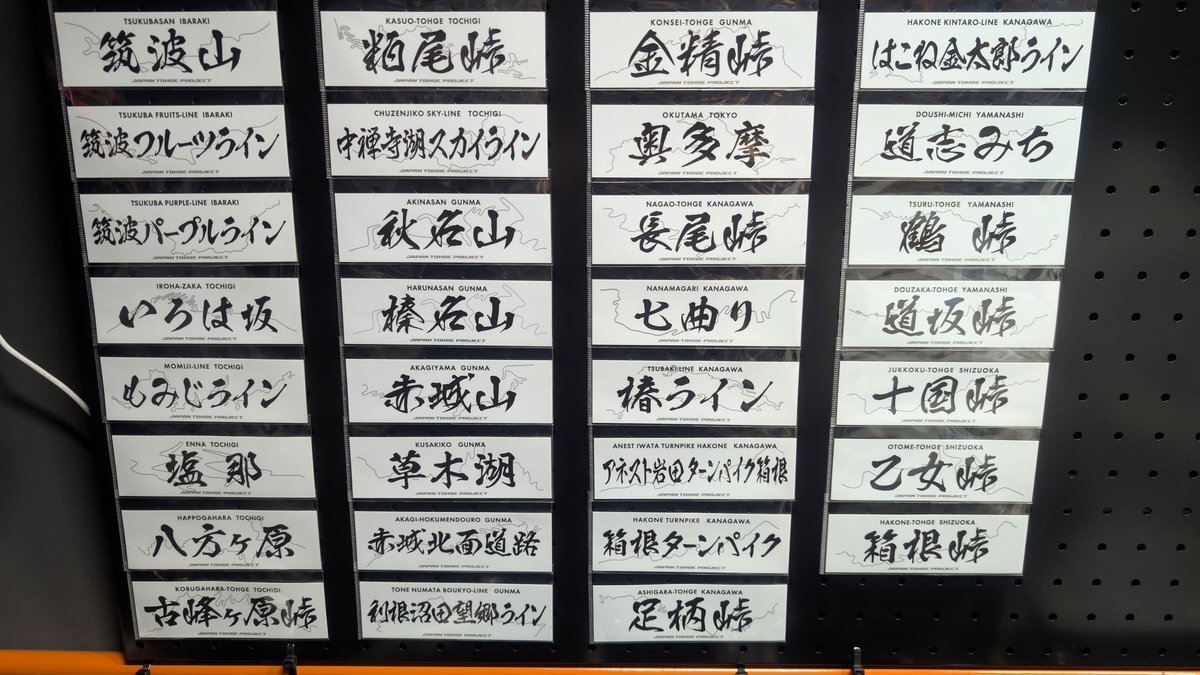 TSUKUBASAN IBARAKI
筑波山
JAPAN TOHGE PROJECT
TSUKUBA FRUITS-LINE IBARAKI
筑波フルーツライン
JAPAN TOHGE PROJECT
TSUKUBA PURPLE-LINE IBARAKI
筑波パープルライン
JAPAN TOHGE PROJECT
IROHA-ZAKA TOCHIGI
いろは坂
JAPAN TOHGE PROJECT
MOMIJI-LINE TOCHIGI
もみじライン
JAPAN TOHGE PROJECT
ENNA TOCHIGI
塩那
JAPAN TOHGE PROJECT
HAPPOGAHARA TOCHIGI
八方ヶ原
JAPAN TOHGE PROJECT
KOBUGAHARA-TOHGE TOCHIGI
古峰ヶ原峠
JAPAN TOHGE PROJECT
KASUO-TOHGE TOCHIGI
粕尾峠
JAPAN TOHGE PROJECT
CHUZENJIKO SKY-LINE TOCHIGI
中禅寺湖スカイライン
JAPAN TOHGE PROJECT
AKINASAN GUNMA
秋名山
JAPAN TOHGE PROJECT
HARUNASAN GUNMA
榛名山
JAPAN TOHGE PROJECT
AKAGIYAMA GUNMA
赤城山
JAPAN TOHGE PROJECT
KUSAKIKO GUNMA
草木湖
JAPAN TOHGE PROJECT
AKAGI-HOKUMENDOURO GUNMA
赤城北面道路
JAPAN TOHGE PROJECT
TONE NUMATA BOUKYO-LINE GUNMA
利根沼田望郷ライン
JAPAN TOHGE PROJECT
KONSEI-TOHGE GUNMA
金精峠
JAPAN TOHGE PROJECT
OKUTAMA TOKYO
奥多摩
JAPAN TOHGE PROJECT
NAGAO-TOHGE KANAGAWA
長尾峠
JAPAN TOHGE PROJECT
NANAMAGARI KANAGAWA
七曲り
JAPAN TOHGE PROJECT
TSUBAKI-LINE KANAGAWA
椿ライン
JAPAN TOHGE PROJECT
ANEST IWATA TURNPIKE HAKONE KANAGAWA
アネスト岩田ターンパイク箱根
JAPAN TOHGE PROJECT
HAKONE TURNPIKE KANAGAWA
箱根ターンパイク
JAPAN TOHGE PROJECT
ASHIGARA-TOHGE KANAGAWA
足柄峠
JAPAN TOHGE PROJECT
HAKONE KINTARO-LINE KANAGAWA
はこね金太郎ライン
JAPAN TOHGE PROJECT
DOUSHI-MICHI YAMANASHI
道志みち
JAPAN TOHGE PROJECT
TSURU-TOHGE YAMANASHI
鶴峠
JAPAN TOHGE PROJECT
DOUZAKA-TOHGE YAMANASHI
道坂峠
JAPAN TOHGE PROJECT
JUKKOKU-TOHGE SHIZUOKA
十国峠
JAPAN TOHGE PROJECT
OTOME-TOHGE SHIZUOKA
乙女峠
JAPAN TOHGE PROJECT
HAKONE-TOHGE SHIZUOKA
箱根峠
JAPAN TOHGE PROJECT